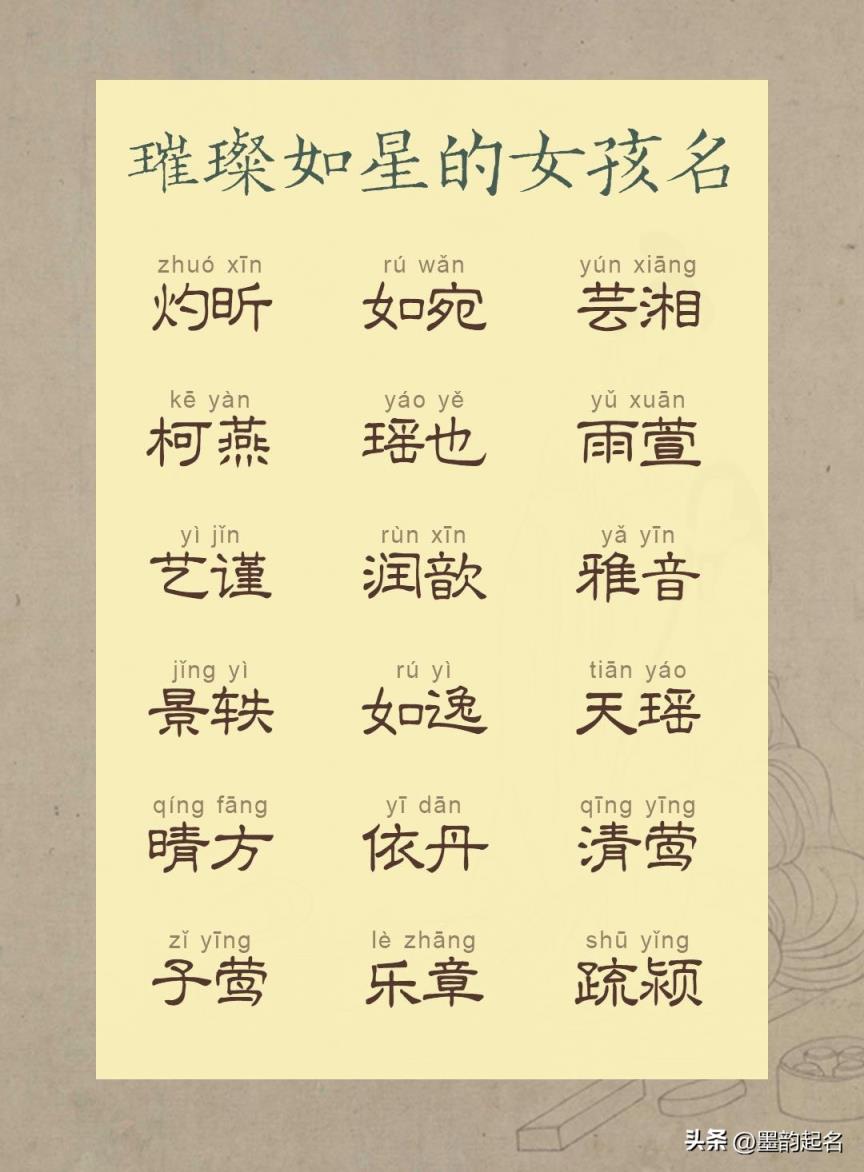 璀璨如星的女孩名
zhuó xīn rú wǎn yún xiāng
灼昕 如宛 芸湘
kē yàn yáo yě yǔ xuān
柯燕 瑶也 雨萱
yì jǐn rùn xīn yǎ yīn
艺谨 润歆 雅音
jǐng yì rú yì tiān yáo
景轶 如逸 天瑶
qíng fāng yī dān qīng yīng
晴方 依丹 清莺
zǐ yīng lè zhāng shū yǐng
子莺 乐章 疏颍
头条 @墨韵起名